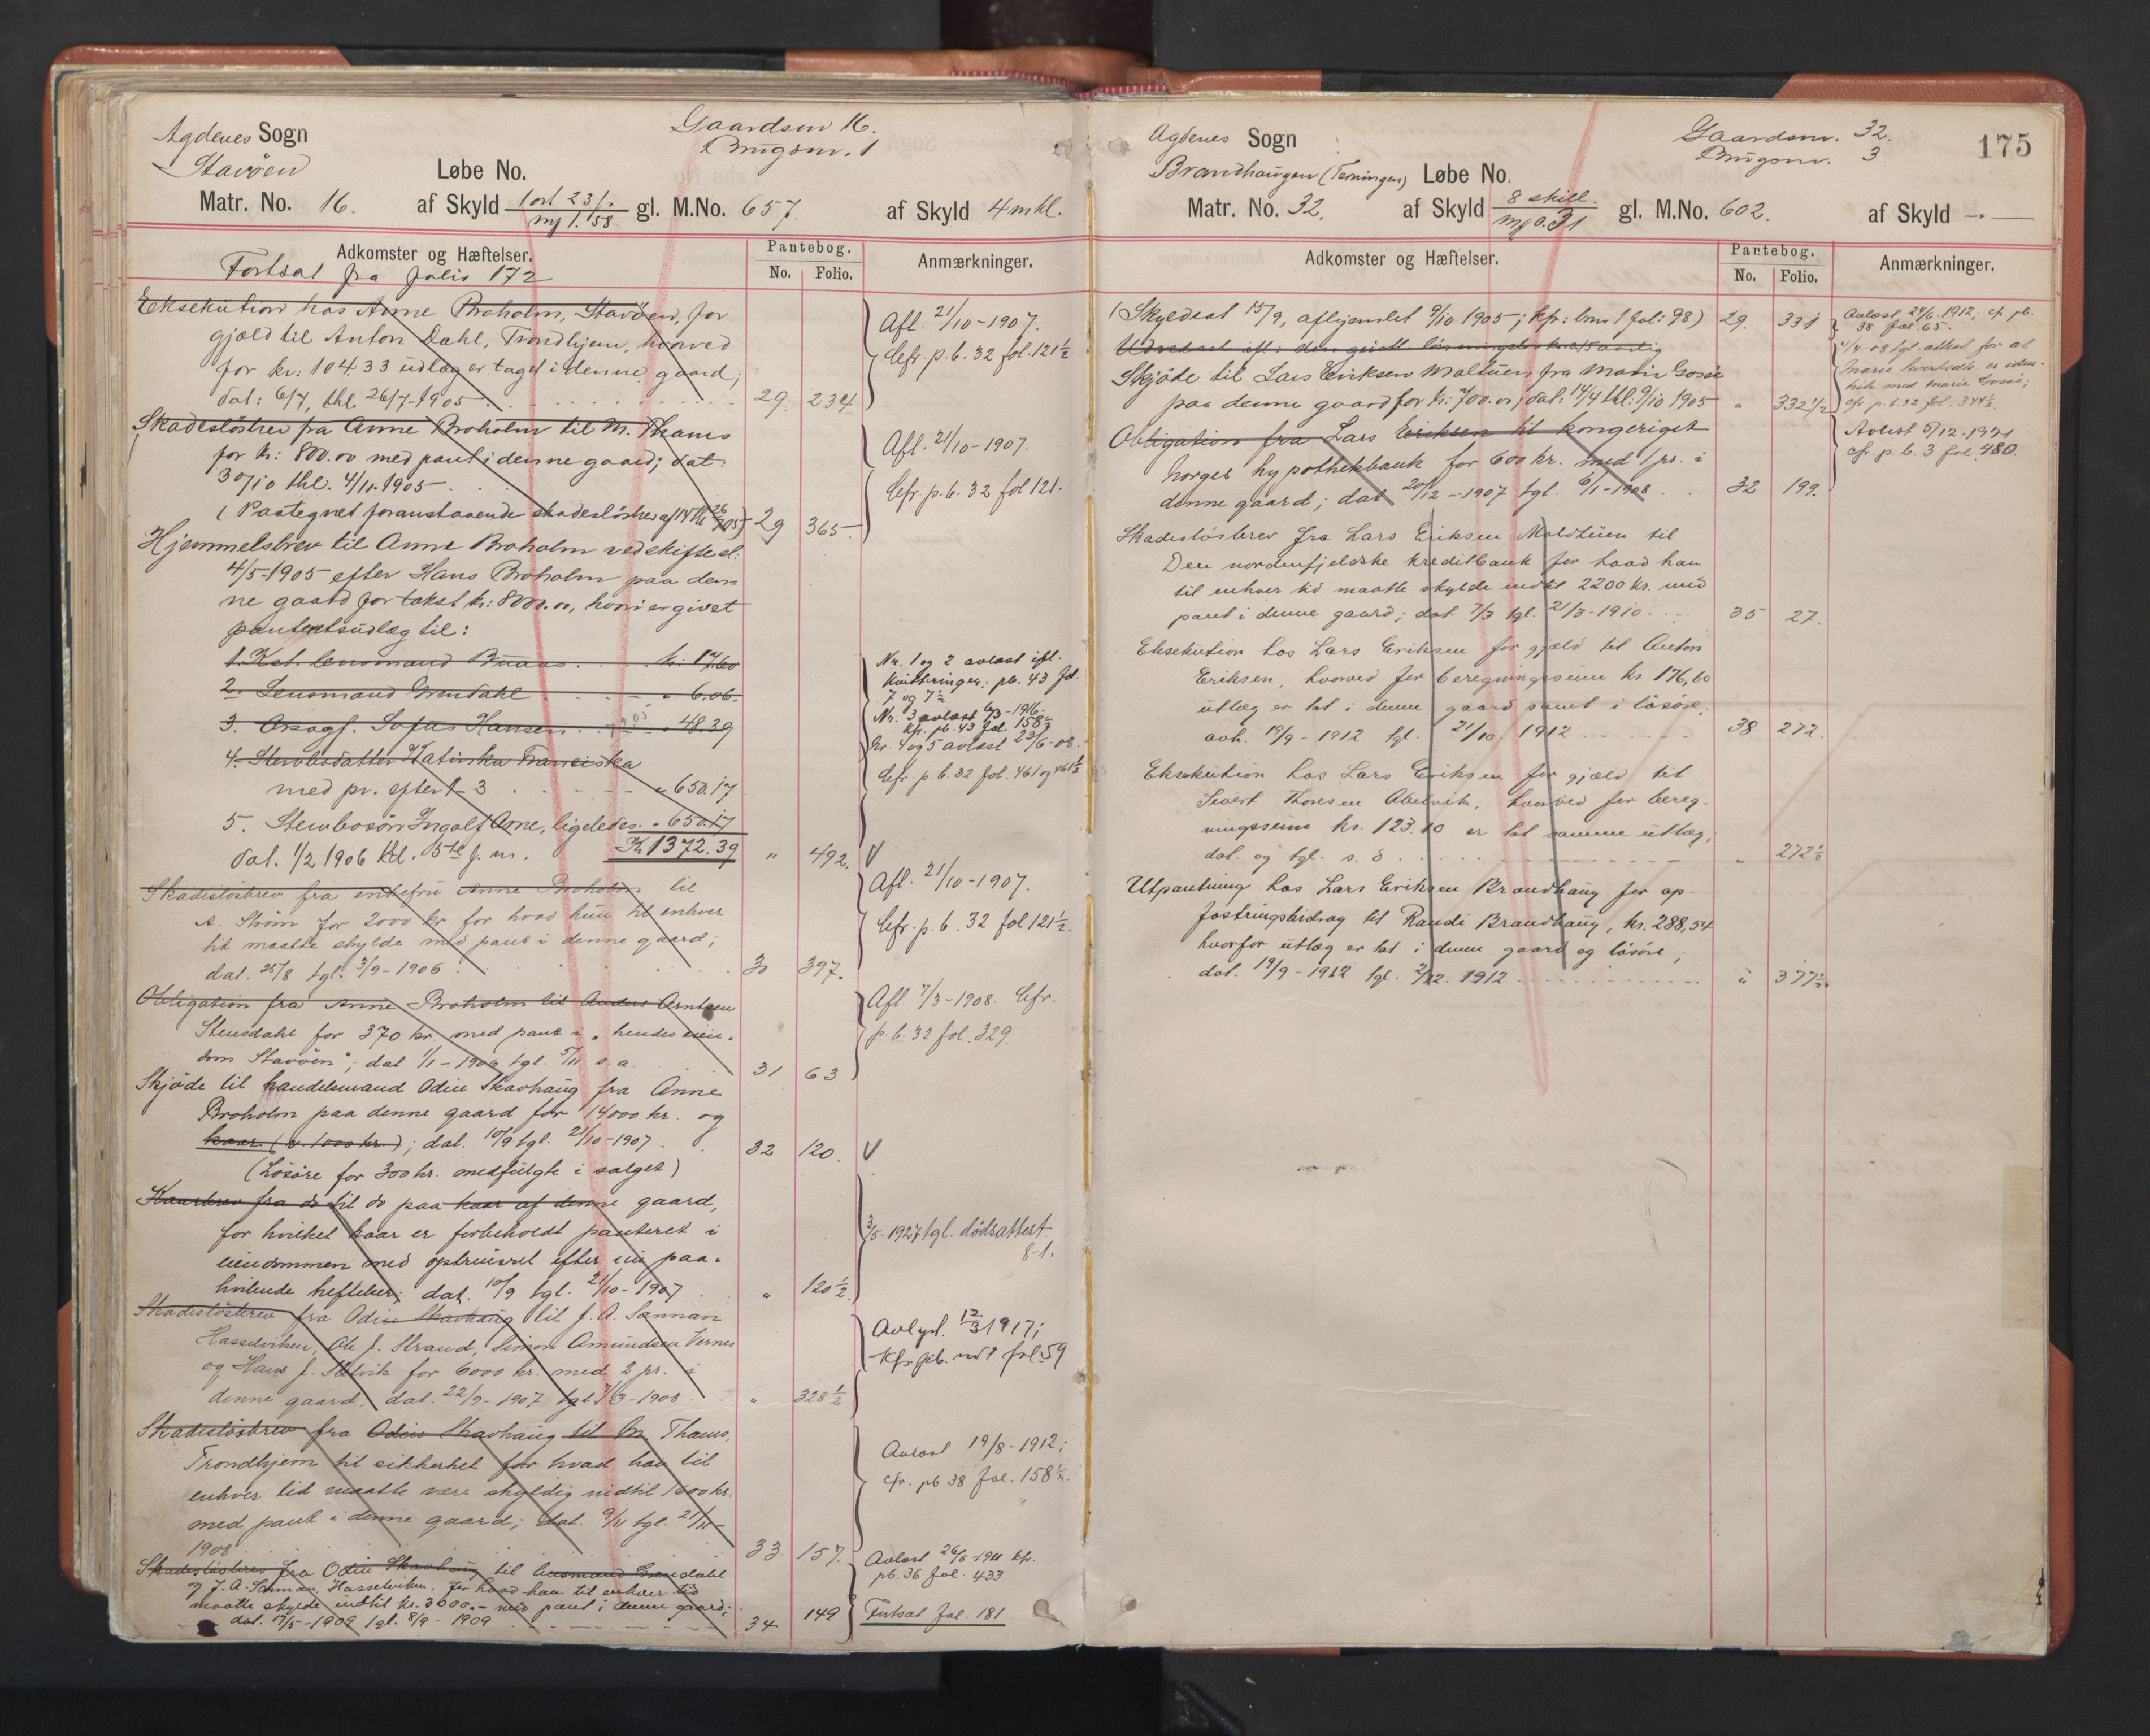 Agdenes Sogn
Gaardsnr 16.
Stavöen
Brugsnr. 1
Løbe No.
Matr. No. 16. af Skyld 1 ort 23 / mj 1.58 gl. M.No. 657. af Skyld 4 mkl.
Adkomster og Hæftelser.
Pantebog.
No. Folio.
Anmærkninger.
Fortsat fra folio 172
Eksekution hos Anne Broholm, Stavöen, for
gjæld til Anton Dahl, Trondhjem, hvorved
for kr: 104.33 udlæg er taget i denne gaard;
dat: 6/7, thl. 26/7-1905 29. 234
Afl. 21/10-1907.
Cfr. p.b. 32 fol. 121½
Skadeslösbrev fra Anne Broholm til M. Thams
for kr: 800.00 med pant i denne gaard; dat:
30/10 thl. 4/11.1905
(Paategnet foranstaaende skadeslösbrev 29 365
Afl. 21/10-1907.
Cfr. p.b. 32 fol 121.
Hjemmelsbrev til Anne Broholm ved skiftesl:
4/5-1905 efter Hans Broholm paa den-
ne gaard for takst kr: 8000.00, hvori er givet
panteretsudlæg til:
1. Kst. lensmand Buaas kr. 17.60
2. Lensmand Grendahl " 6.06.
3. Sofus Hansen " 48.39
4. Stervbodatter Katinka Franciska
med pr. efter 1-3 " 650.17
5. Stervbosön Ingolf Arne, ligeledes " 650.17
Kr 1372.39
dat. 1/2 1906 thl. 15de s. m. " 492.
Nr. 1 og 2 avlæst ifl.
kvitteringer: pb. 43 fol.
7 og 7½
Nr. 3 avlæst 6/3-1916.
kfr. pb. 43 fol. 158½
Nr. 4 og 5 avlæst 23/6-08.
Cfr. p.b. 32 fol. 461 og 461½
Skadeslösbrev fra enkefru Anne Broholm til
A. Ström for 2000 kr for hvad hun til enhver
tid maatte skylde med pant i denne gaard;
dat. 28/8 tgl. 3/9-1906 30 397.
Afl. 21/10-1907.
Cfr. p.b. 32 fol 121½.
Obligation fra Anne Broholm til Anders Arntsen
Stensdahl for 370 kr. med pant i „hendes eien-
dom Stavöen"; dat 1/11-1906 tgl. 5/11 s.a. 31 63
Afl. 7/3-1908. Cfr.
p.b. 32 fol. 329.
Skjöde til handelsmand Odin Skavhaug fra Anne
Broholm paa denne gaard for 14000 kr. og
kaar (v. 1000 kr.); dat. 10/9 tgl. 21/10-1907 32 120.
(Lösöre for 300 kr. medfulgte i salget)
Kaarbrev fra do til do paa kaar af denne gaard,
for hvilket kaar er forbeholdt panteret i
eiendommen med oprinvel efter nu paa-
hvilende heftelser; dat. 10/9 tgl. 21/10-1907 " 120½
3/5-1927 tgl. dødsattest
8-1.
Skadeslösbrev fra Odin Skavhaug til J. A. Sannan
Hasselviken, Ole J. Strand, Simon Amundsen Vernes
og Hans J. Selvik for 6000 kr. med 2 pr. i
denne gaard, dat. 22/9-1907 tgl 7/3-1908 " 328½
Avlyst. 12/3 1917;
Kfr pb. nr 1 fol 59
Skadeslösbrev fra Odin Skavhaug til M. Thams,
Trondhjem til sikkerhet for hvad han til
enhver tid maatte være skyldig indtil 1600 kr.
med pant i denne gaard; dat. 9/11 tgl. 21/11-
1908 33 157.
Avlæst 19/8-1912;
cfr. pb 38 fol. 158½.
Skadeslösbrev fra Odin Skavhaug til lensmand Grendahl
og J. A. Sannan, Hasselviken, for hvad han til enhver tid
maatte skylde indtil kr. 3000.- med pant i denne gaard;
dat. 7/5-1909 tgl. 8/9-1909 34 149
Avlæst 26/5-1911 kfr.
pb. 36 fol. 433
Fortsat fol. 181
Agdenes Sogn
Gaardsnr. 32.
175
Brandhaugen (Terningen) Løbe No.
Brugsnr. 3
Matr. No. 32. af Skyld 8 skill. / mj 0.31 gl. M.No. 602. af Skyld -.-
Adkomster og Hæftelser.
Pantebog.
No. Folio.
Anmærkninger.
(Skyldsat 15/9, aflyemlet 9/10 1905; kfr: lnr 1 fol: 98) 29. 331
Avlæst, 24/6.1912; cfr. pb.
38 fol. 65.
Skjöde til Lars Eriksen Moltuen fra Marie Gossé
paa denne gaard for kr: 700.00; dat: 14/4 thl: 9/10 1905 " 332½
4/4-08 tgl. attest for at
Marie Sivertsdtr. er iden-
tisk med Marie Gossé;
cfr p.b. 32 fol. 344½.
Obligation fra Lars Eriksen til kongeriget
Norges hypothekbank for 600 kr. med 1 pr. i
denne gaard; dat 20/12-1907 tgl. 6/1-1908 32 199.
Avlest 5/12.1931
cfr. p.b. 3 fol 480.
Skadeslösbrev fra Lars Eriksen Moldtuen til
Den nordenfjeldske kreditbank for hvad han
til enhver tid maatte skylde indtil 2200 kr. med
pant i denne gaard; dat 7/3 tgl. 21/3-1910 35 27.
Eksekution hos Lars Eriksen for gjæld til Anton
Eriksen, hvorved for beregningssum kr 176,60
utlæg er tat i denne gaard samt i lösöre,
avh. 19/9-1912 tgl. 21/10. 1912 38 272.
Eksekution hos Lars Eriksen for gjæld til
Sivert Thoresen Abelvik, hvorved for bereg-
ningssum kr. 123.10 er tat samme utlæg,
dat. og tgl. s. d " 272½
Utpantning hos Lars Eriksen Brandhaug for op-
fostringsbidrag til Randi Brandhaug, kr. 288,54
hvorfor utlæg er tat i denne gaard og lösöre;
dat. 19/9-1912 tgl. 2/12. 1912 " 377½